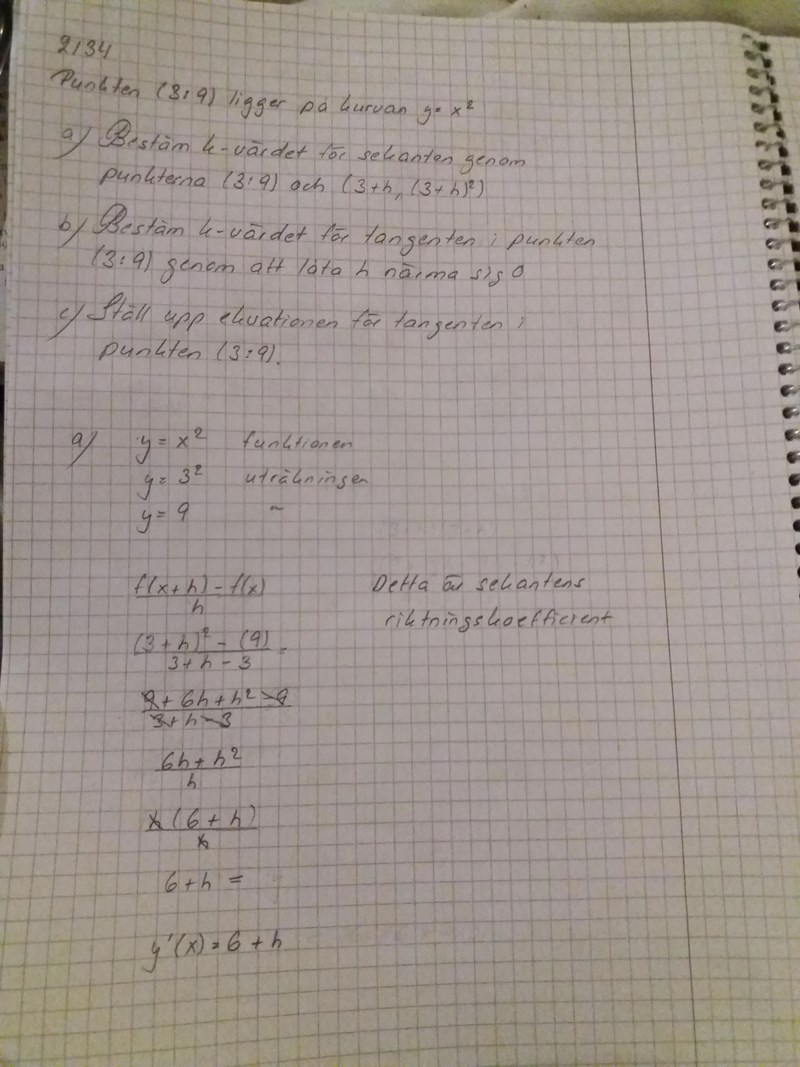 2134
Punkten (3:9) ligger på kurvan y = x²
a) Bestäm k-värdet för sekanten genom
punkterna (3:9) och (3+h, (3+h)²)
b) Bestäm k-värdet för tangenten i punkten
(3:9) genom att låta h närma sig 0
c) Ställ upp ekvationen för tangenten i
punkten (3:9).
a) y = x² funktionen
y = 3² uträkningen
y = 9 ~
f(x+h) - f(x) / h Detta är sekantens
riktningskoefficient
(3+h)² - (9) / 3+h-3 =
9 + 6h + h² - 9 / 3+h-3
6h + h² / h
h(6+h) / h
6+h =
y'(x) = 6 + h